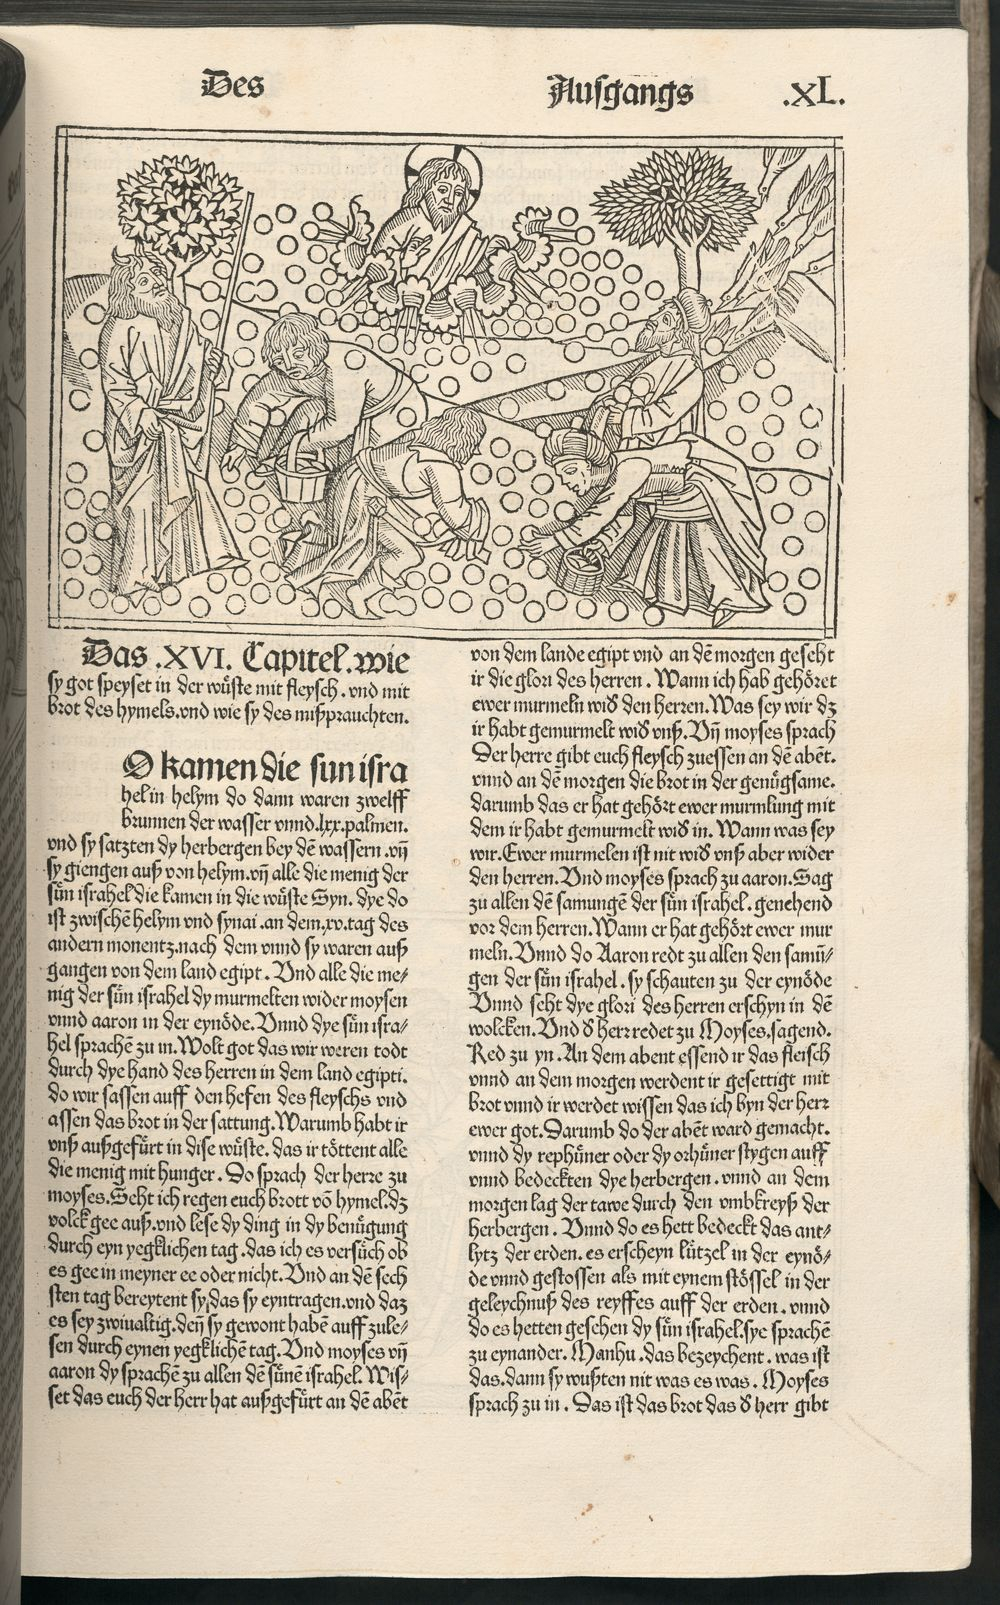 Des Ausgangs .XL.
Das .XVI. Capitel. wie
sy got speyset in der wůste mit fleysch . vnd mit
brot des hymels. vnd wie sy des mißprauchten.
O kamen die sun isra
hel in helym do dann waren zwelff
brunnen der wasser vnnd .lxx. palmen.
vnd sy satzten dy herbergen bey dē wassern . vñ
sy giengen auß von helym. vñ alle die menig der
sün israhel die kamen in die wůste Syn. dye do
ist zwischē helym vnd synai . an dem .xv. tag des
andern monentz. nach dem vnnd sy waren auß
gangen von dem land egipt . Vnd alle die me⸗
nig der sün israhel dy murmelten wider moysen
vnnd aaron in der eynöde. Vnnd dye sün isra⸗
hel sprachē zu in. Wolt got das wir weren todt
durch dye hand des herren in dem land egipti.
do wir sassen auff den hefen des fleyschs vnd
assen das brot in der sattung. Warumb habt ir
vnß außgefůrt in dise wůste. das ir töttent alle
die menig mit hunger . Do sprach der herre zu
moyses. Seht ich regen euch brott vō hymel. dz
volck gee auß. vnd lese dy ding in dy benůgung
durch eyn yegklichen tag. das ich es versůch ob
es gee in meyner ee oder nicht. Vnd an dē sech
sten tag bereytent sy, das sy eyntragen. vnd daz
es sey zwiualtig. deñ sy gewont habē auff zule⸗
sen durch eynen yegklichē tag. Vnd moyses vñ
aaron dy sprachē zu allen dē sünē israhel. Wis⸗
set das euch der herr hat außgefůrt an dē abēt
von dem lande egipt vnd an dē morgen geseht
ir die glori des herren . Wann ich hab gehöret
ewer murmeln wid̕ den herren. Was sey wir dz
ir habt gemurmelt wid̕ vnß. Vñ moyses sprach
Der herre gibt euch fleysch zuessen an dē abēt.
vnnd an dē morgen die brot in der genůgsame.
darumb das er hat gehört ewer murmlung mit
dem ir habt gemurmelt wid̕ in. Wann was sey
wir. Ewer murmelen ist nit wid̕ vnß aber wider
den herren. Vnd moyses sprach zu aaron. Sag
zu allen dē samungē der sün israhel . genehend
vor dem herren. Wann er hat gehört ewer mur
meln. Vnnd do Aaron redt zu allen den samū⸗
gen der sün israhel . sy schauten zu der eynöde
Vnnd seht dye glori des herren erschyn in dē
wolcken. Vnd d̕ herr redet zu Moyses. sagend.
Red zu yn. An dem abent essend ir das fleisch
vnnd an dem morgen werdent ir gesettigt mit
brot vnnd ir werdet wissen das ich byn der herr
ewer got. Darumb do der abēt ward gemacht.
vnnd dy rephůner oder dy orhůner stygen auff
vnnd bedeckten dye herbergen . vnnd an dem
morgen lag der tawe durch den vmbkreyß der
herbergen . Vnnd do es hett bedeckt das ant⸗
lytz der erden. es erscheyn lůtzel in der eynö⸗
de vnnd gestossen als mit eynem stössel in der
geleychnuß des reyffes auff der erden . vnnd
do es hetten gesehen dy sün israhel. sye sprachē
zu eynander. Manhu . das bezeychent . was ist
das. dann sy wußten nit was es was . Moyses
sprach zu in . Das ist das brot das d̕ herr gibt